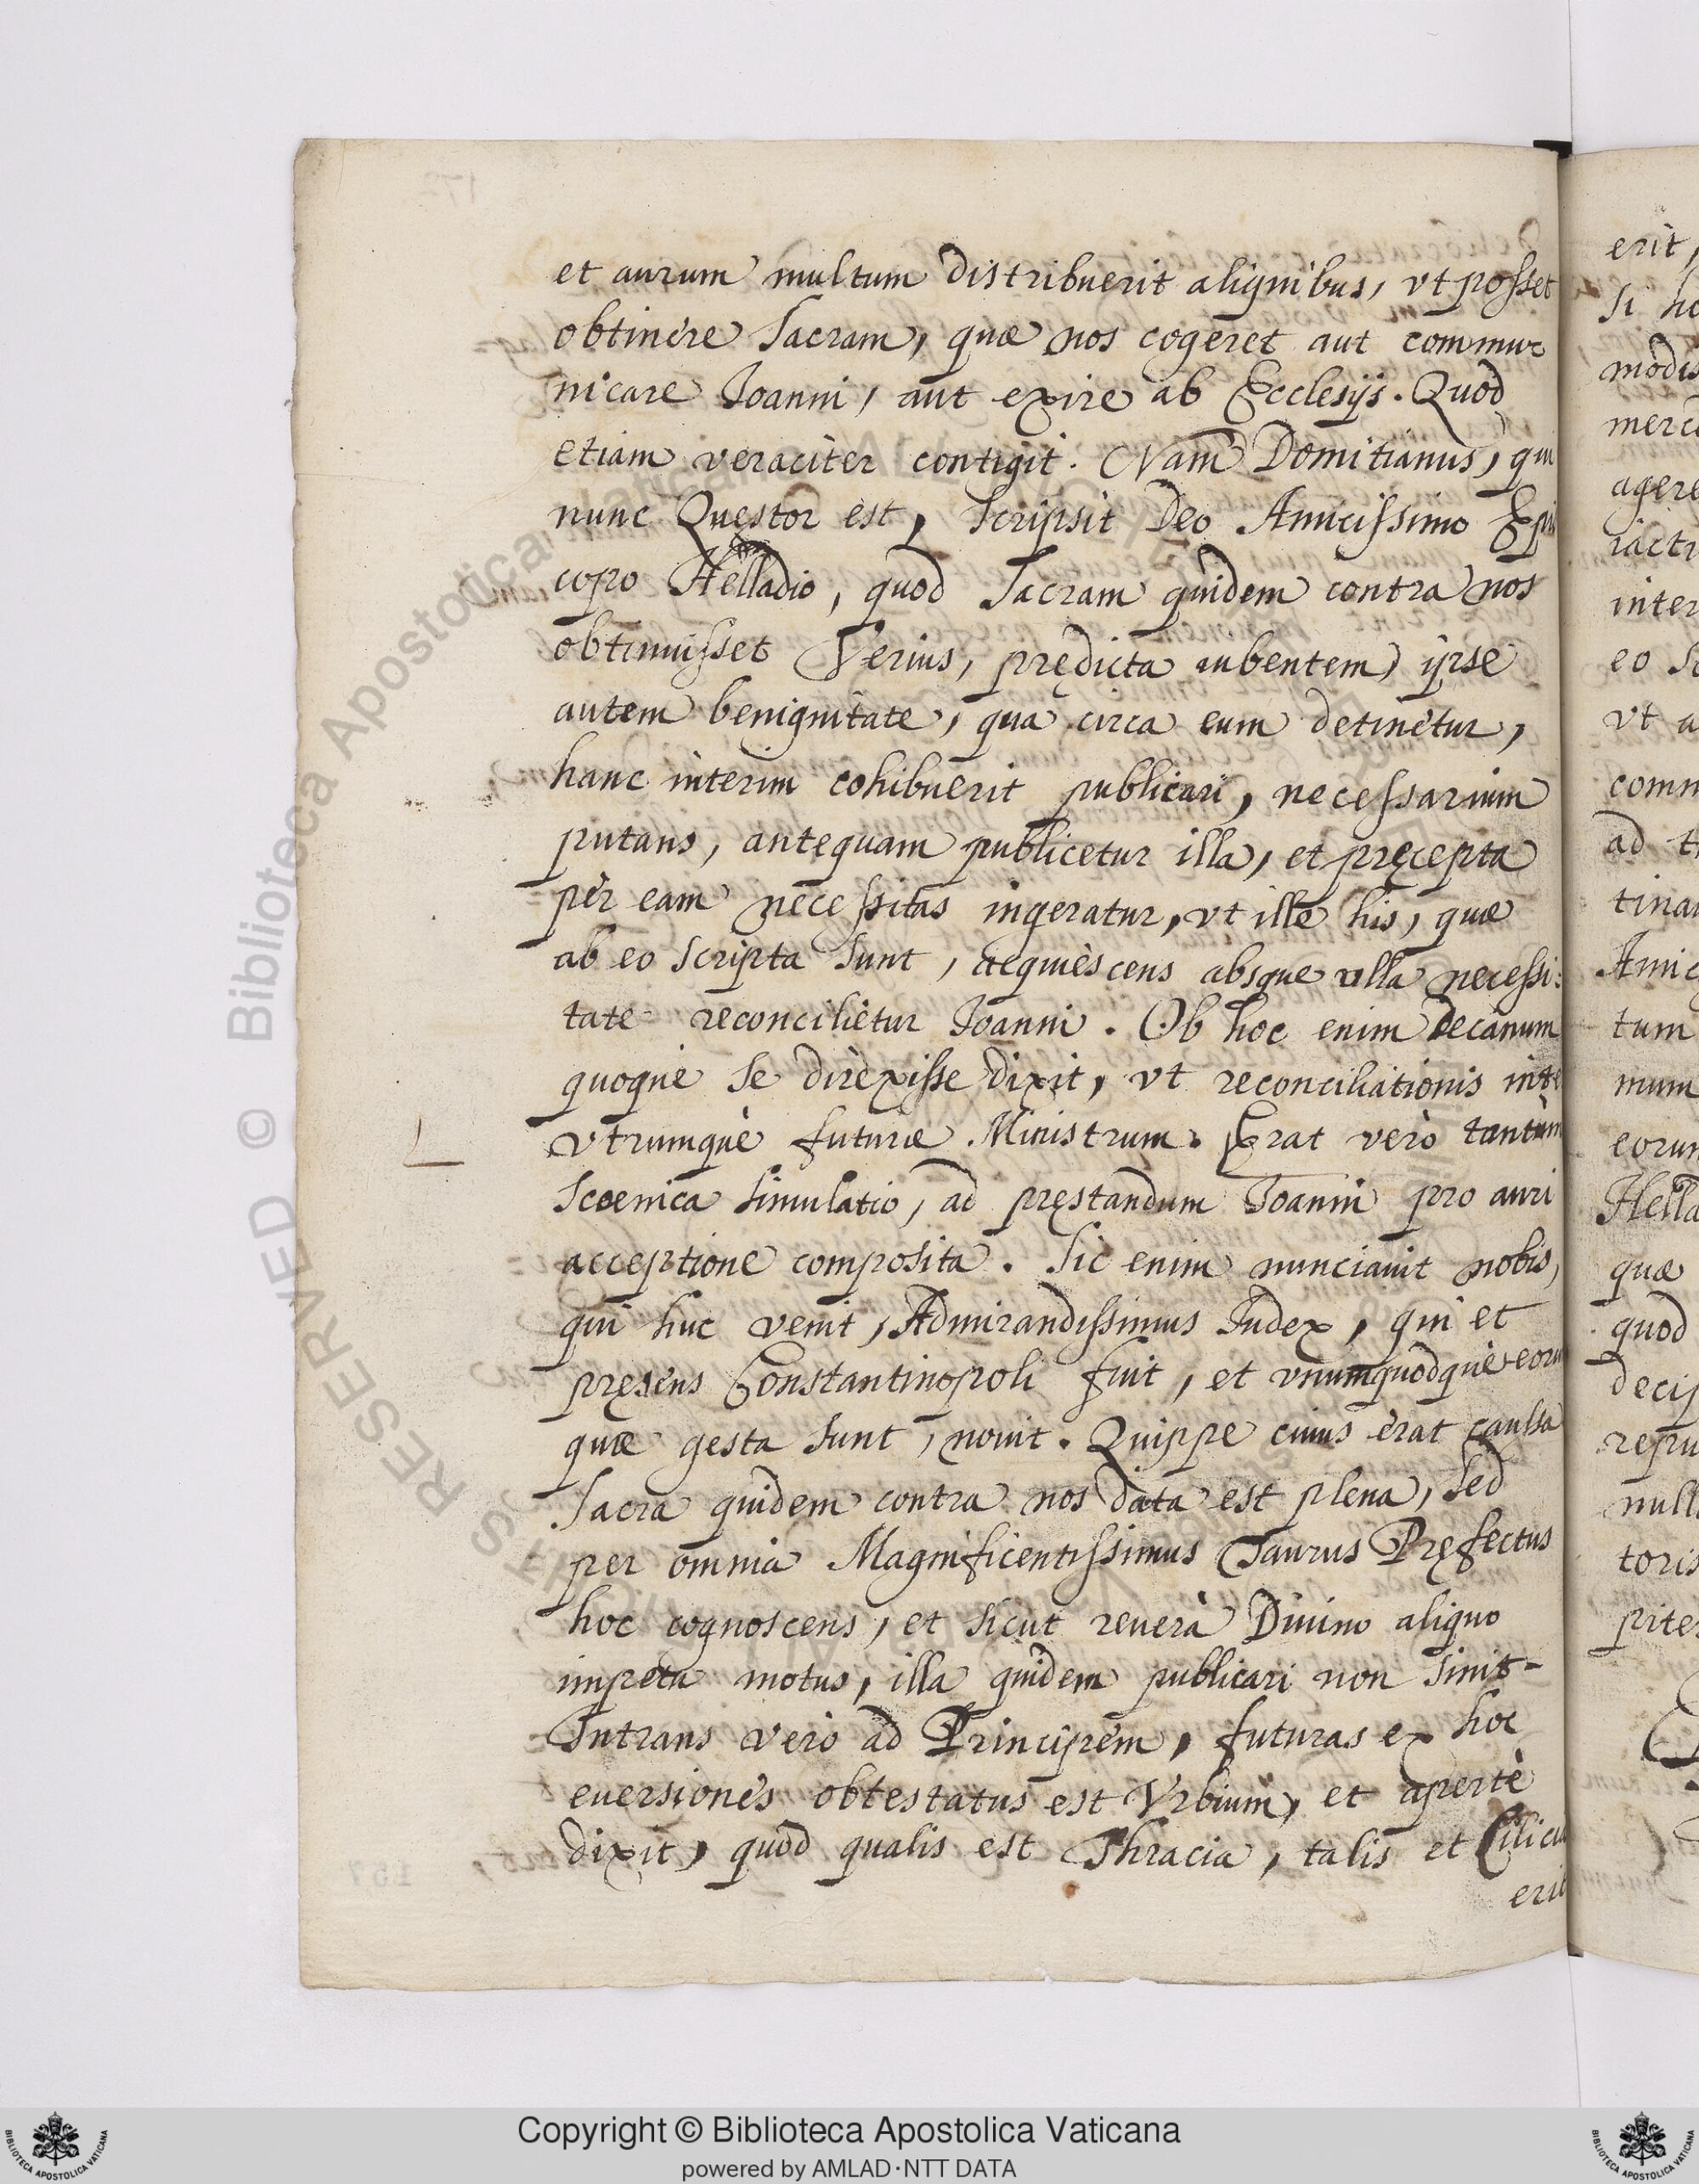 et aurum multum distribuerit aliquibus, vt posset
obtinere Sacram, quæ nos cogeret aut commu-
nicare Ioanni, aut exire ab Ecclesijs. Quod
etiam veraciter contigit. Nam Domitianus, qui
nunc Quęstor est, Scripsit Deo Amicissimo Epis
copo Helladio, quod Sacram quidem contra nos
obtinuisset Verius, prędicta iubentem, ipse
autem benignitate, qua circa eum detinetur,
hanc interim cohibuerit publicari, necessarium
putans, antequam publicetur illa, et pręcepta
per eam necessitas ingeratur, vt ille his, quæ
ab eo Scripta Sunt, acquiescens absque vlla necessi:
tate reconcilietur Ioanni. Ob hoc enim Decanum
quoque Se direxisse dixit, vt reconciliationis inte
vtrumquè futuræ Ministrum. Erat verò tantùm
Scœnica Simulatio, ad pręstandum Ioanni pro auri
acceptione composita. Sic enim nunciauit nobis,
qui huc venit, Admirandissimus Iudex, qui et
pręsens Constantinopoli fuit, et vnumquodquè eoru
quæ gesta Sunt, nouit. Quippe cuius erat caussa
Sacra quidem contra nos data est plena, Sed
per omnia Magnificentissimus Taurus Pręfectus
hoc cognoscens, et Sicut reuerà Diuino aliquo
impetu motus, illa quidem publicari non Sinit-
Intrans verò ad Principem, futuras ex hoc
euersiones obtestatus est Vrbium, et apertè
dixit, quod qualis est Thracia, talis et Cilicia
erit
erit,
Si ho
modis
merc
agere
iacti
inter
eo Sc
vt a
comm
ad t
tinar
Amic
tum
mum
eorum
Hella
quæ
quod
decip
repu
null
toris
piter
© Biblioteca Apostolica Vaticana ALL RIGHTS RESERVED
Copyright © Biblioteca Apostolica Vaticana
powered by AMLAD·NTT DATA
BIBLIOTECA APOSTOLICA VATICANA
BIBLIOTECA APOSTOLICA VATICANA